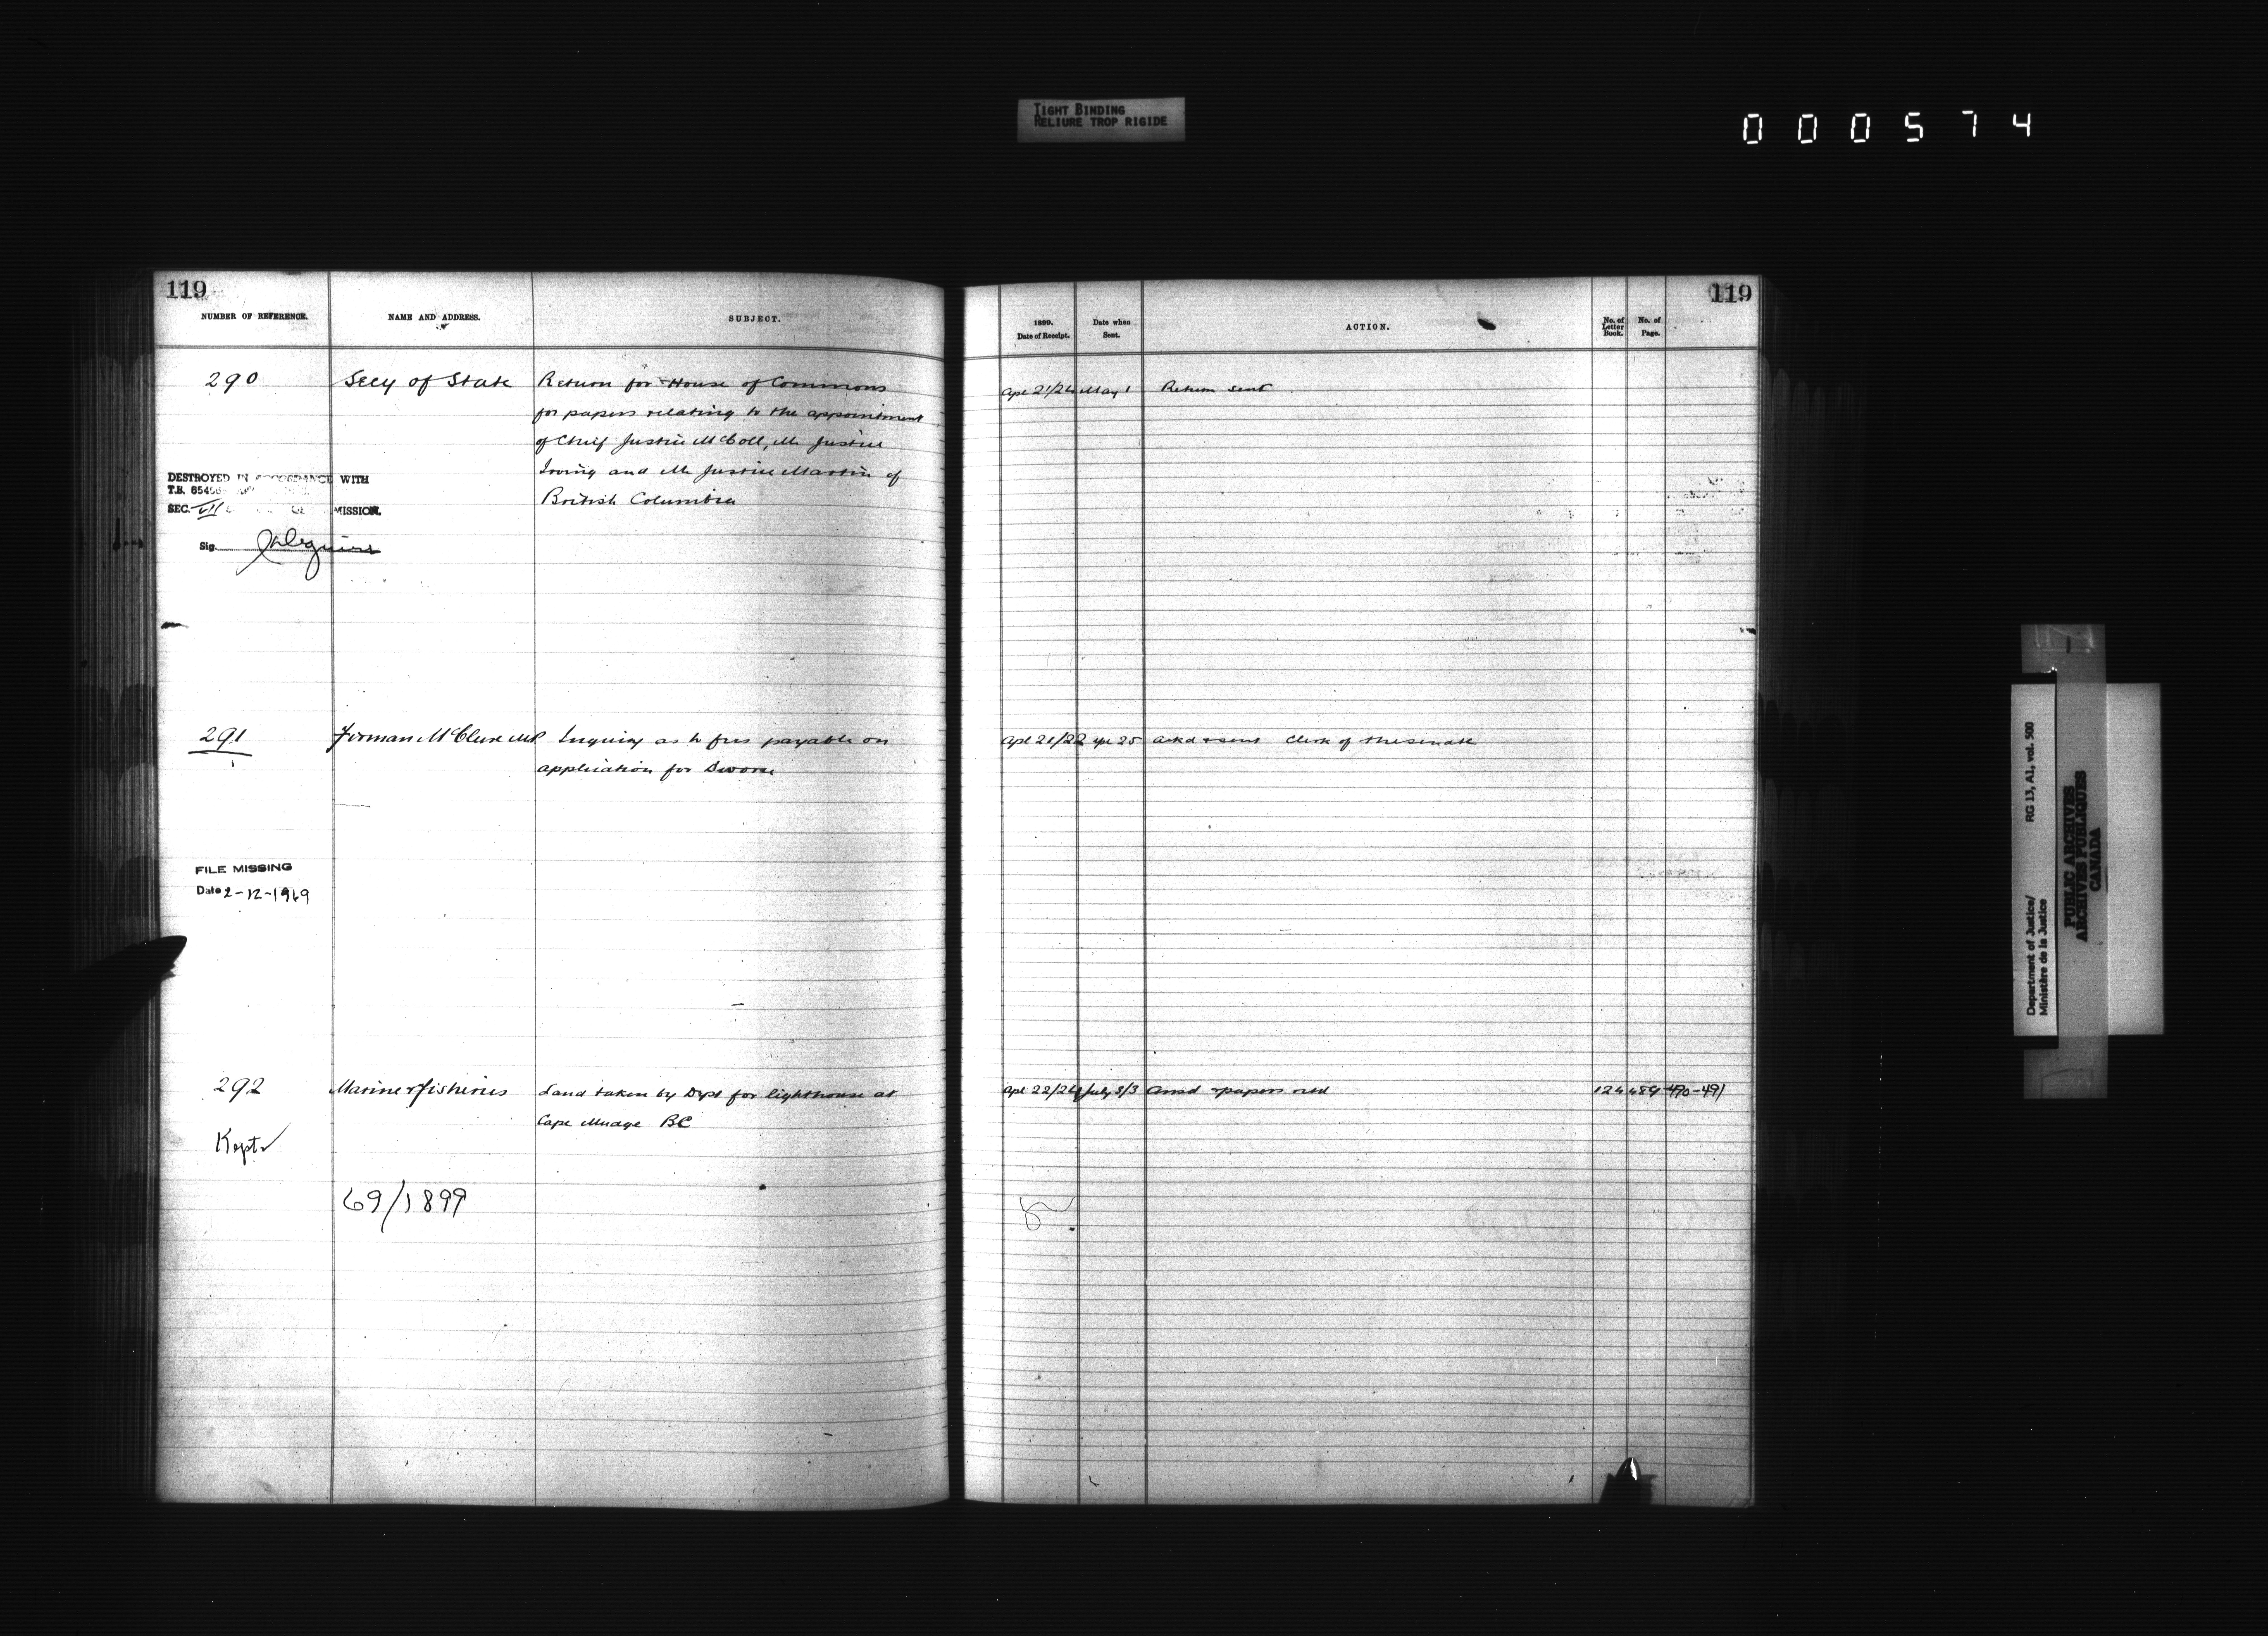 TIGHT BINDING
RELIURE TROP RIGIDE
000574
119
NUMBER OF REFERENCE.
NAME AND ADDRESS.
SUBJECT.
290
Secy of State
Return for House of Commons
for papers relating to the appointment
of Chief Justice McColl, Mr Justice
Irving and Mr Justice Martin of
British Columbia
DESTROYED IN ACCORDANCE WITH
T.B.
SEC. VII MISSION.
Sig.
291
Firman McClure MP
Inquiry as to fees payable on
application for Divorce
FILE MISSING
Date 2-12-1969
292
Marine & Fisheries
Land taken by Dept for lighthouse at
Cape Mudge BC
Kept
69/1899
119
1899.
Date of Receipt.
Date when
Sent.
ACTION.
No. of
Letter
Book.
No. of
Page.
Apl 21/24 May 1 Return sent
Apl 21/22 Apl 25 Ackd & sent Clerk of the Senate
Apl 22/24 July 3/3 Ansd & papers retd 124 489-490-491
Department of Justice/
Ministère de la Justice
RG 13, A1, vol. 500
PUBLIC ARCHIVES
ARCHIVES PUBLIQUES
CANADA